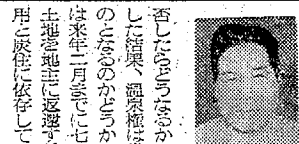 否したらどうなるか
した結果、温泉権は
のとなるのかどうか
は来年二月までに七
土地を地主に返還す
用と炭住に依存して